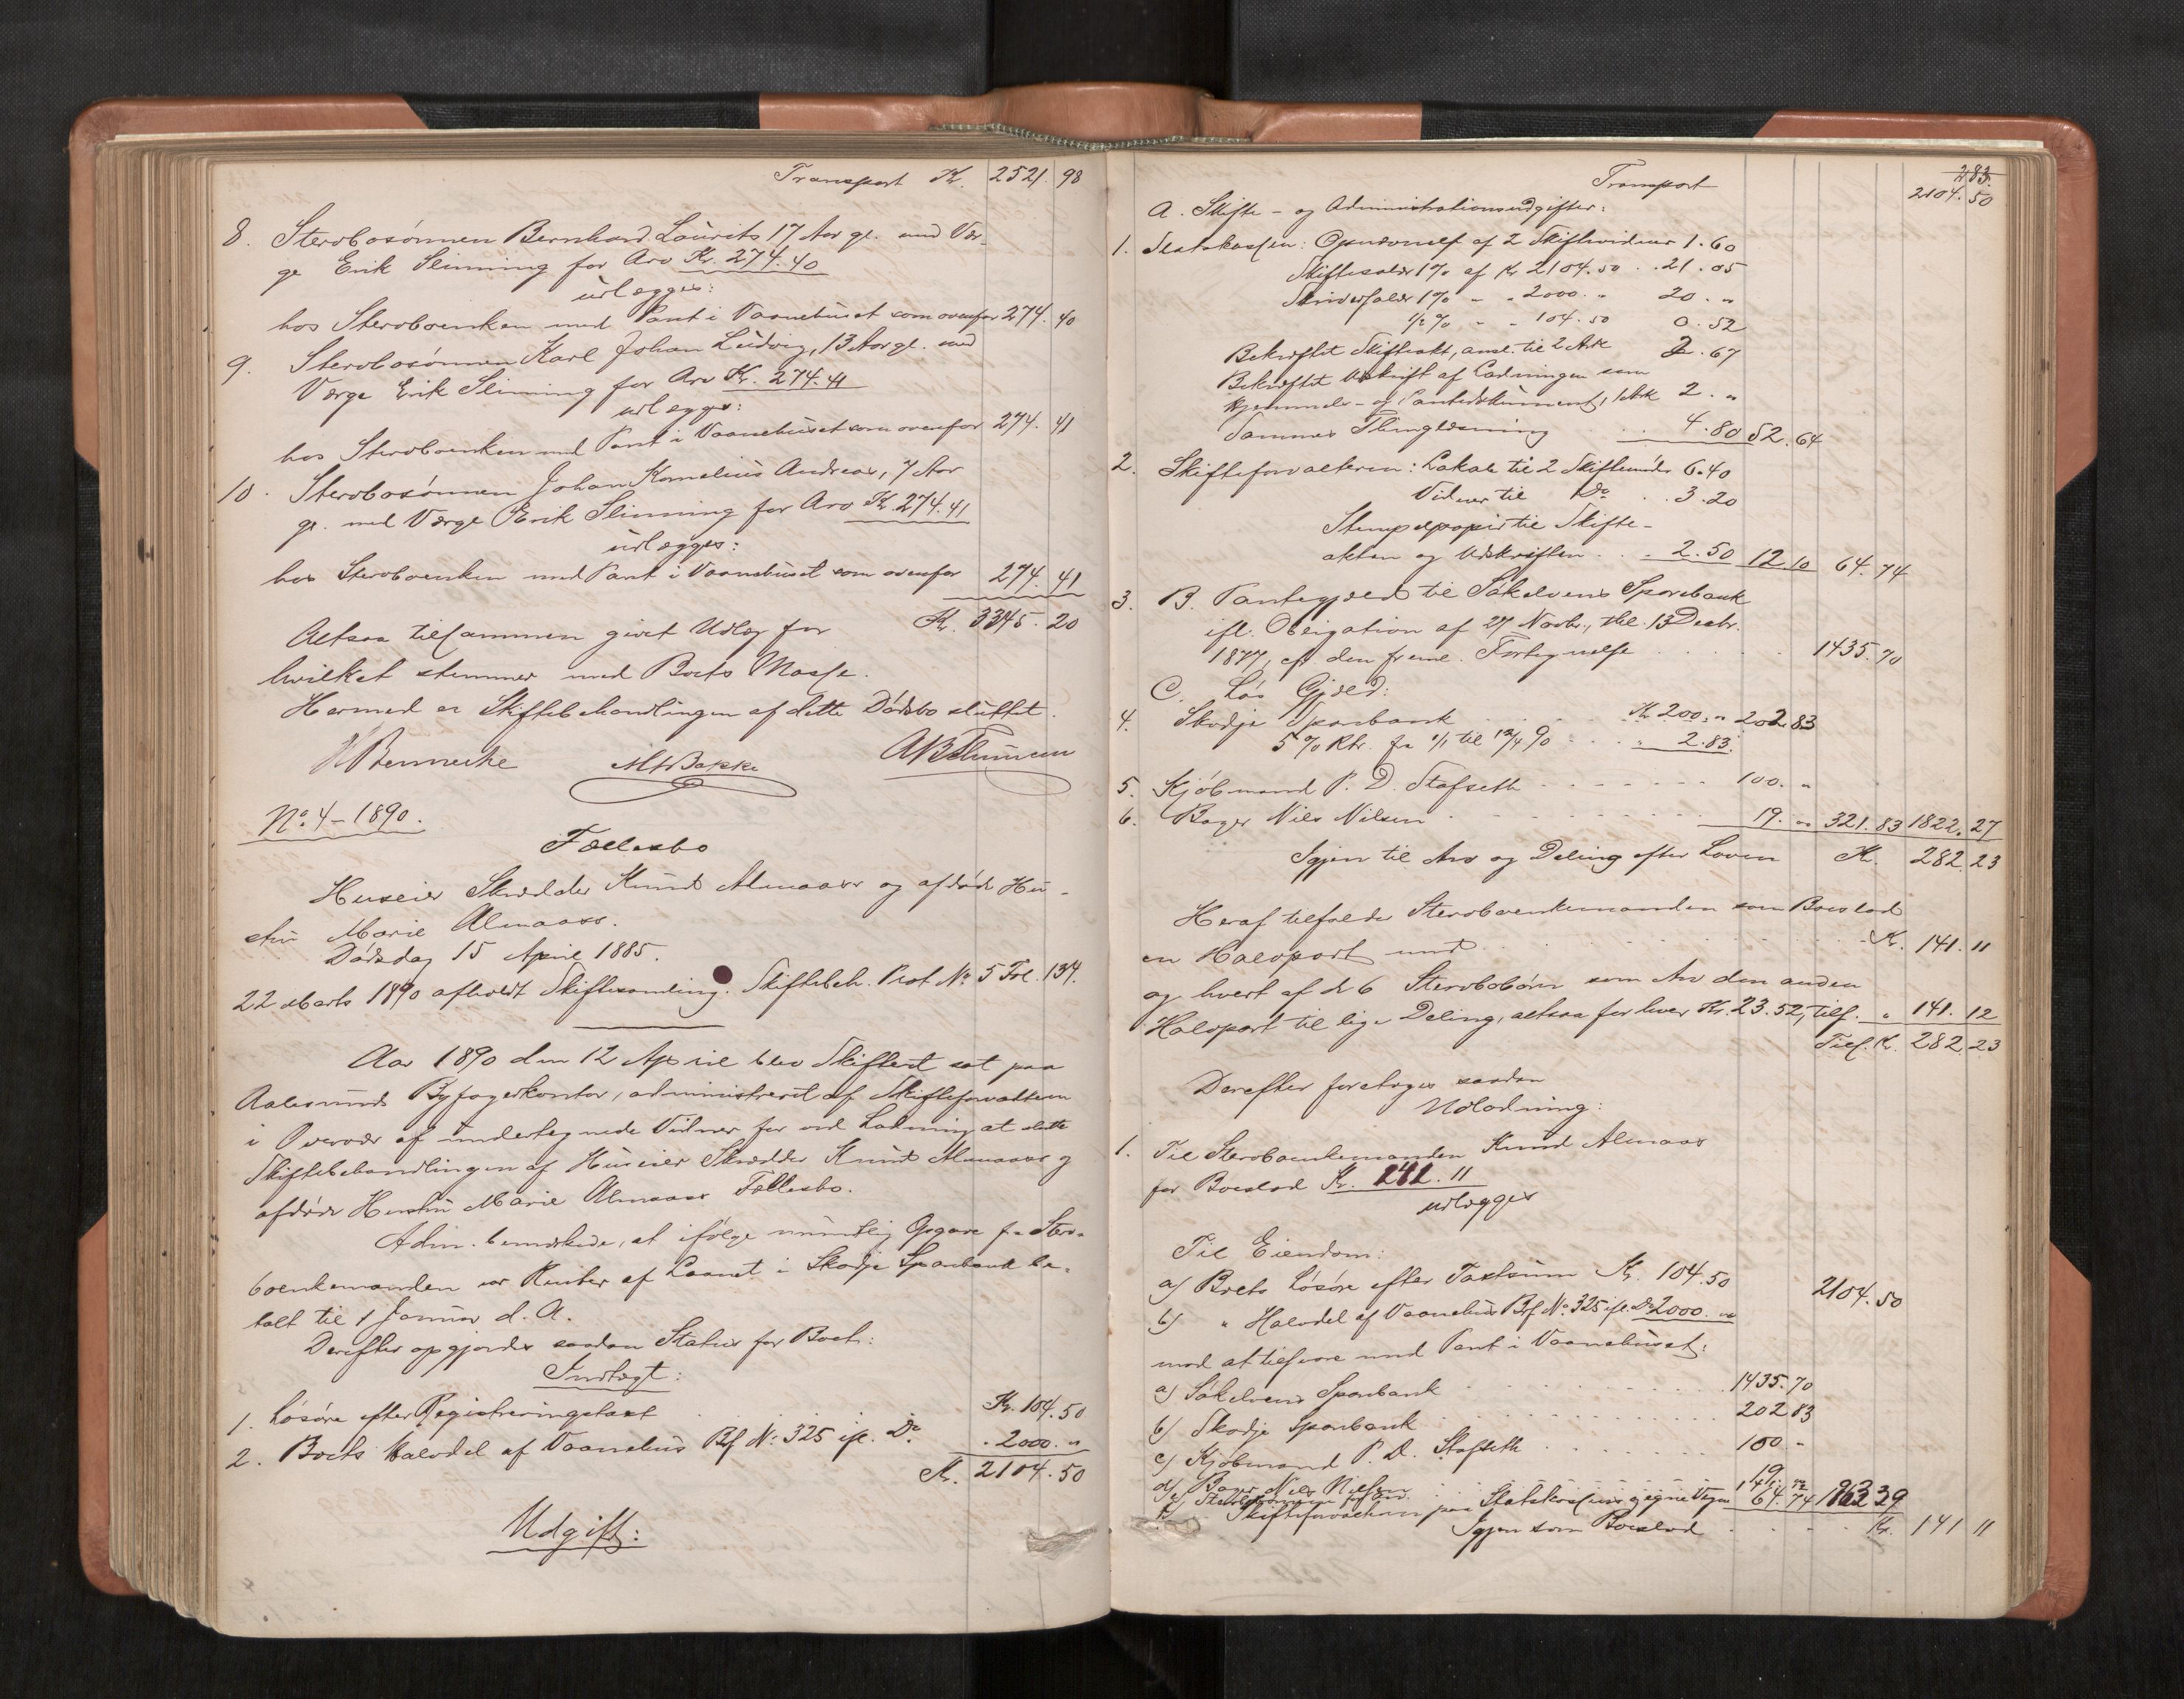 Transport Kr. 2521. 98
8. Stervbosönnen Bernhard Laurits 17 Aar gl. med Vær-
ge Erik Slinning for Arv Kr. 274.40
udlægges:
hos Stervboenken med Pant i Vaanehuset som ovenfor 274. 40
9. Stervbosönnen Karl Johan Ludvig, 13 Aar gl. med
Værge Erik Slinning for Arv Kr. 274.41
udlægges:
hos Stervboenken med Pant i Vaanehuset som ovenfor 274. 41
10. Stervbosönnen Johan Kornelius Andreas, 7 Aar
gl. med Værge Erik Slinning for Arv Kr. 274.41
udlægges:
hos Stervboenken med Pant i Vaanehuset som ovenfor 274. 41
Altsaa tilsammen givet Udlæg for Kr. 3345. 20
hvilket stemmer med Boets Masse.
Hermed er Skiftebehandlingen af dette Dödsbo sluttet.
No. 4 - 1890.
Fællesbo
Huseier Skrædder Knud Almaass og afdöde Hu-
stru Marie Almaass.
Dödsdag 15 April 1885.
22 Marts 1890 afholdt Skiftesamling. Skiftebeh. Prot No 5 Fol. 134.
Aar 1890 den 12 April blev Skifteret sat paa
Aalesunds Byfogedkontor, administreret af Skifteforvalteren
i Overvær af undertegnede Vidner for ved Lodning at slutte
Skiftebehandlingen af Huseier Skrædder Knud Almaass og
afdöde Hustru Marie Almaass Fællesbo.
Adm. bemærkede, at ifölge mundtlig Opgave fra Sterv-
boenkemanden var Renter af Laanet i Skodje Sparebank be-
talt til 1 Januar d. A.
Derefter opgjordes saadan Status for Boet:
Indtægt:
1. Lösöre efter Registreringstaxt Kr. 104. 50
2. Boets Halvdel af Vaanehus Bf No. 325 ifl. Do. " 2000. "
Kr. 2104. 50
Udgift:
283.
Transport 2104. 50
A. Skifte- og Administrationsudgifter:
1. Statskassen: Opnævnelse af 2 Skiftevidner 1.60
Skiftesalær 1% af Kr 2104.50 . . 21.05
Skriversalær 1% " " 2000. " 20. "
1/2 % " " 104.50 0.52
Bekræftet Skifteakt, ansl. til 2 Ark 2.67
Bekræftet Udskrift af Lodningen som
Hjemmels- og Pantedokument, 1 Ark 2. "
Sammes Thinglæsning . . 4.80 52.64
2. Skifteforvalteren: Lokale til 2 Skiftemöder 6.40
Vidner til Do . . 3.20
Stempelpapir til Skifte-
akten og Udskriften . . . 2.50 12.10 64.74
3. B. Pantegjæld til Sökelvens Sparebank
ifl. Obligation af 27 Novbr., thl. 13 Decbr.
1877, eft. den freml. Fortegnelse . . . . . 1435.70
C. Lös Gjæld:
4. Skodje Sparebank . . . . Kr 200. " 202.83
5 % Rtr. fra 1/1 til 12/4 90 . . . . " 2.83
5. Kjöbmand P. D. Stafseth . . . . . . . 100. "
6. Bager Nils Nilsen . . . . . . . . . . 19. " 321.83 1822.27
Igjen til Arv og Deling efter Loven Kr. 282.23
Heraf tilfalder Stervboenkemanden som Boeslod
en Halvpart med . . . . . . . . . . . Kr. 141.11
og hvert af de 6 Stervbobörn som Arv den anden
Halvpart til lige Deling, altsaa for hver Kr. 23.52, tils. " 141.12
Tils. Kr. 282.23
Derefter foretoges saadan
Udlodning:
1. Til Stervboenkemanden Knud Almaas
for Boeslod Kr. 141.11
udlægges
Til Eiendom:
a) Boets Lösöre efter Taxtsum Kr. 104.50
b) " Halvdel af Vaanehus Bf. No. 325 ifl. Do 2000. " 2104.50
mod at tilsvare med Pant i Vaanehuset:
a) Sökelvens Sparebank . . . . . . . 1435.70
b) Skodje Sparebank . . . . . . . . 202.83
c) Kjöbmand P. D. Stafseth . . . . . . 100 "
d) Bager Nils Nielsen . . . . 19 "
e) 141.12
f) Skifteforvalteren paa Statskassens og egne Vegne 64.74 1963 39
Igjen som Boeslod . . . . . Kr. 141 11